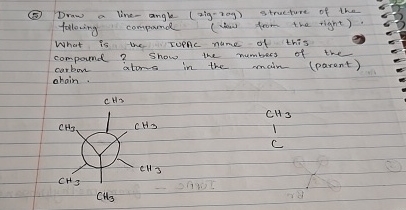 ⑤ Draw a line-angle (zig-zag) structure of the
following compound (view from the right).
What is the IUPAC name of this
compound? Show the numbers of the
carbon atoms in the main (parent)
chain.
CH3
CH3 CH3
CH3
CH3
CH3
CH3
C